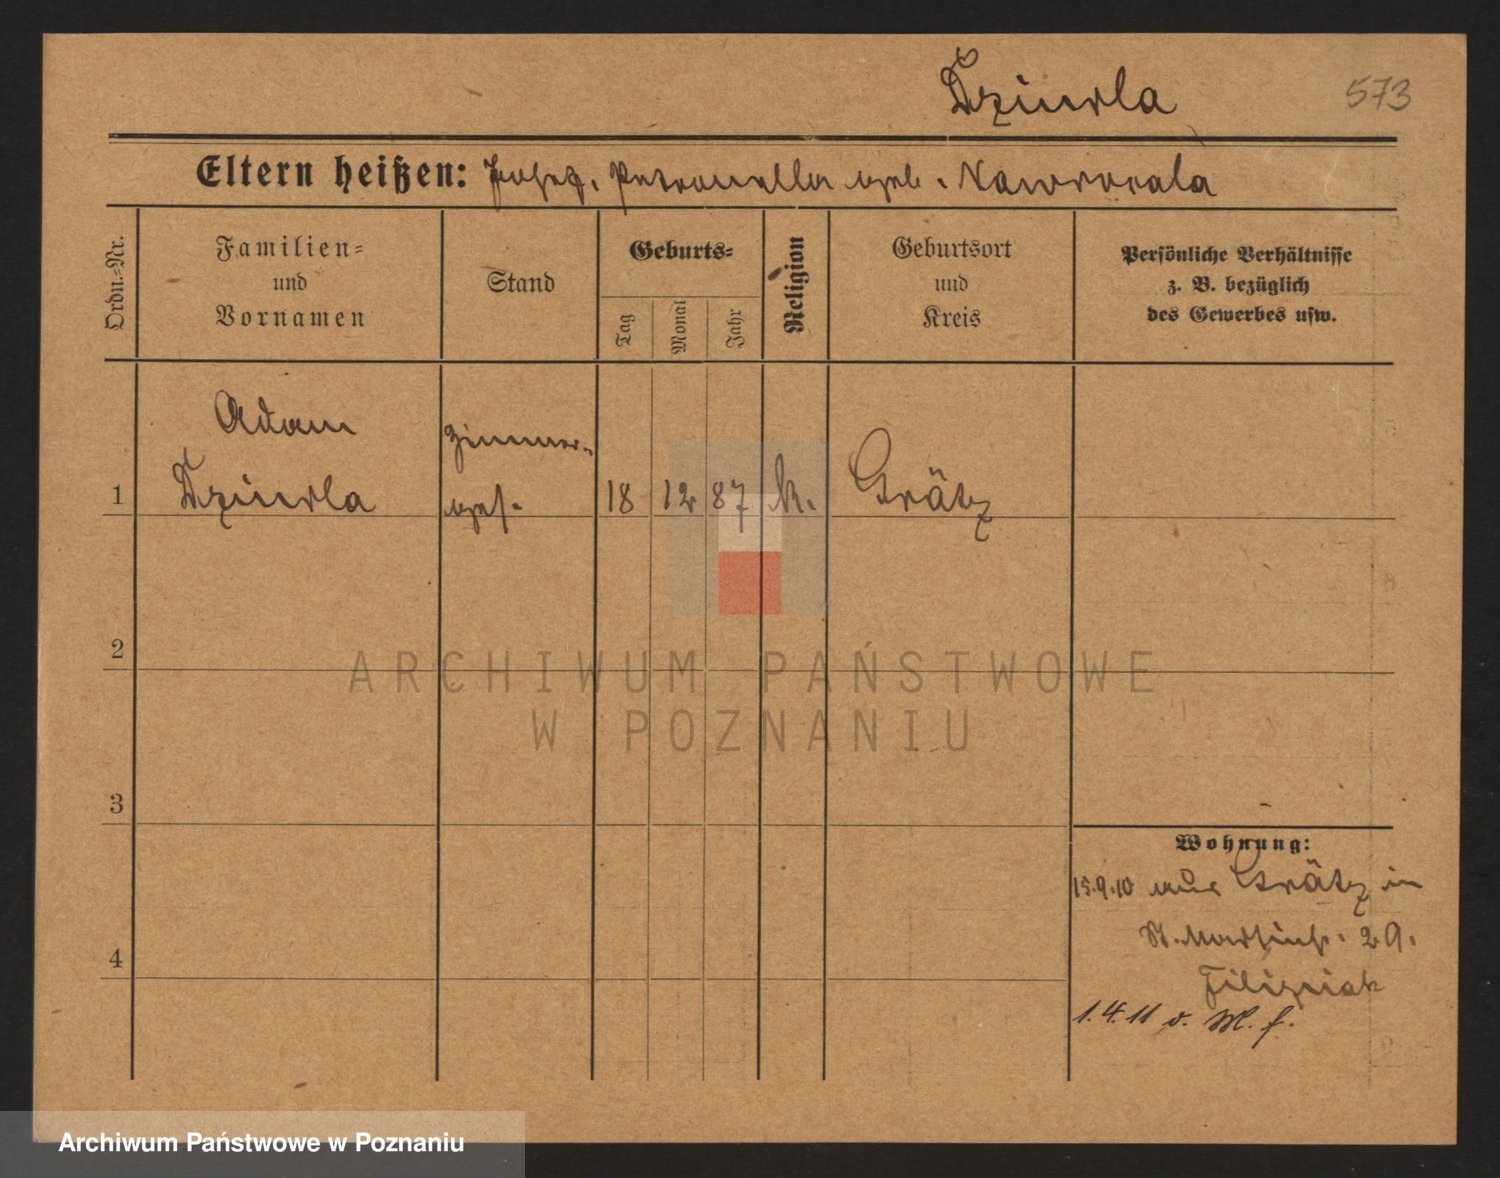 Dziurla
573
Eltern heißen: Josef, Petronella geb. Nawrocala
Ordn.-Nr.
Familien-
und
Vornamen
Stand
Geburts-
Tag
Monat
Jahr
Religion
Geburtsort
und
Kreis
Persönliche Verhältnisse
z. B. bezüglich
des Gewerbes usw.
1
Adam
Dziurla
Zimmer-
ges.
18
12
87
k.
Grätz
2
3
4
Wohnung:
15.9.10 aus Grätz in
St. Martinstr. 29.
Filipiak
1.4.11 v. M. f.
ARCHIWUM PAŃSTWOWE
W POZNANIU
Archiwum Państwowe w Poznaniu